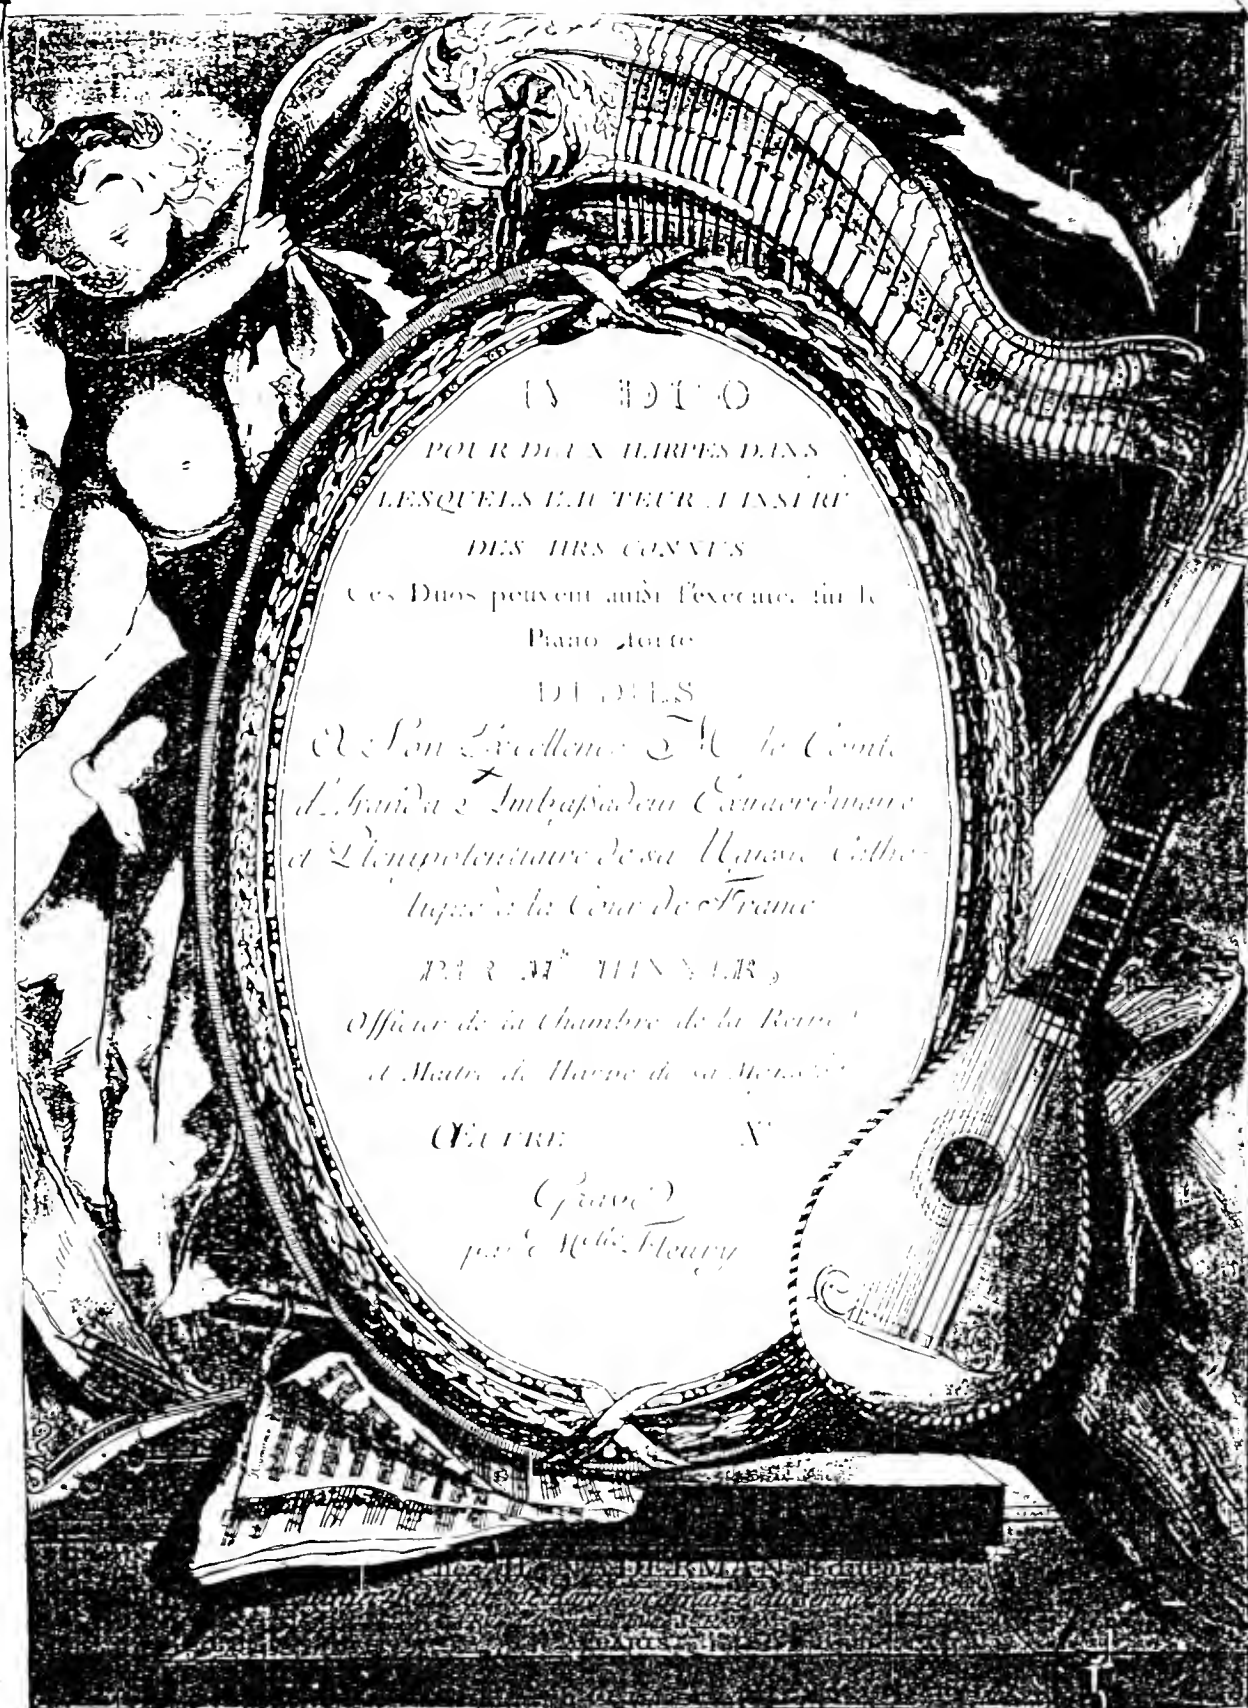 IV DUO
POUR DEUX HARPES DANS
LESQUELS L'AUTEUR A INSÉRÉ
DES AIRS CONNUS
Ces Duos peuvent aussi s'executer sur le
Piano forte
DEDIÉS
A Son Excellence M le Comte
d'Aranda Ambassadeur Extraordinaire
et Plenipotentiaire de sa Majesté Catho-
lique à la Cour de France
PAR Mr HINNER,
Officier de la Chambre de la Reine
et Maitre de Harpe de sa Majesté
ŒUVRE X
Gravé
par Melle Fleury
NADERMAN Editeur